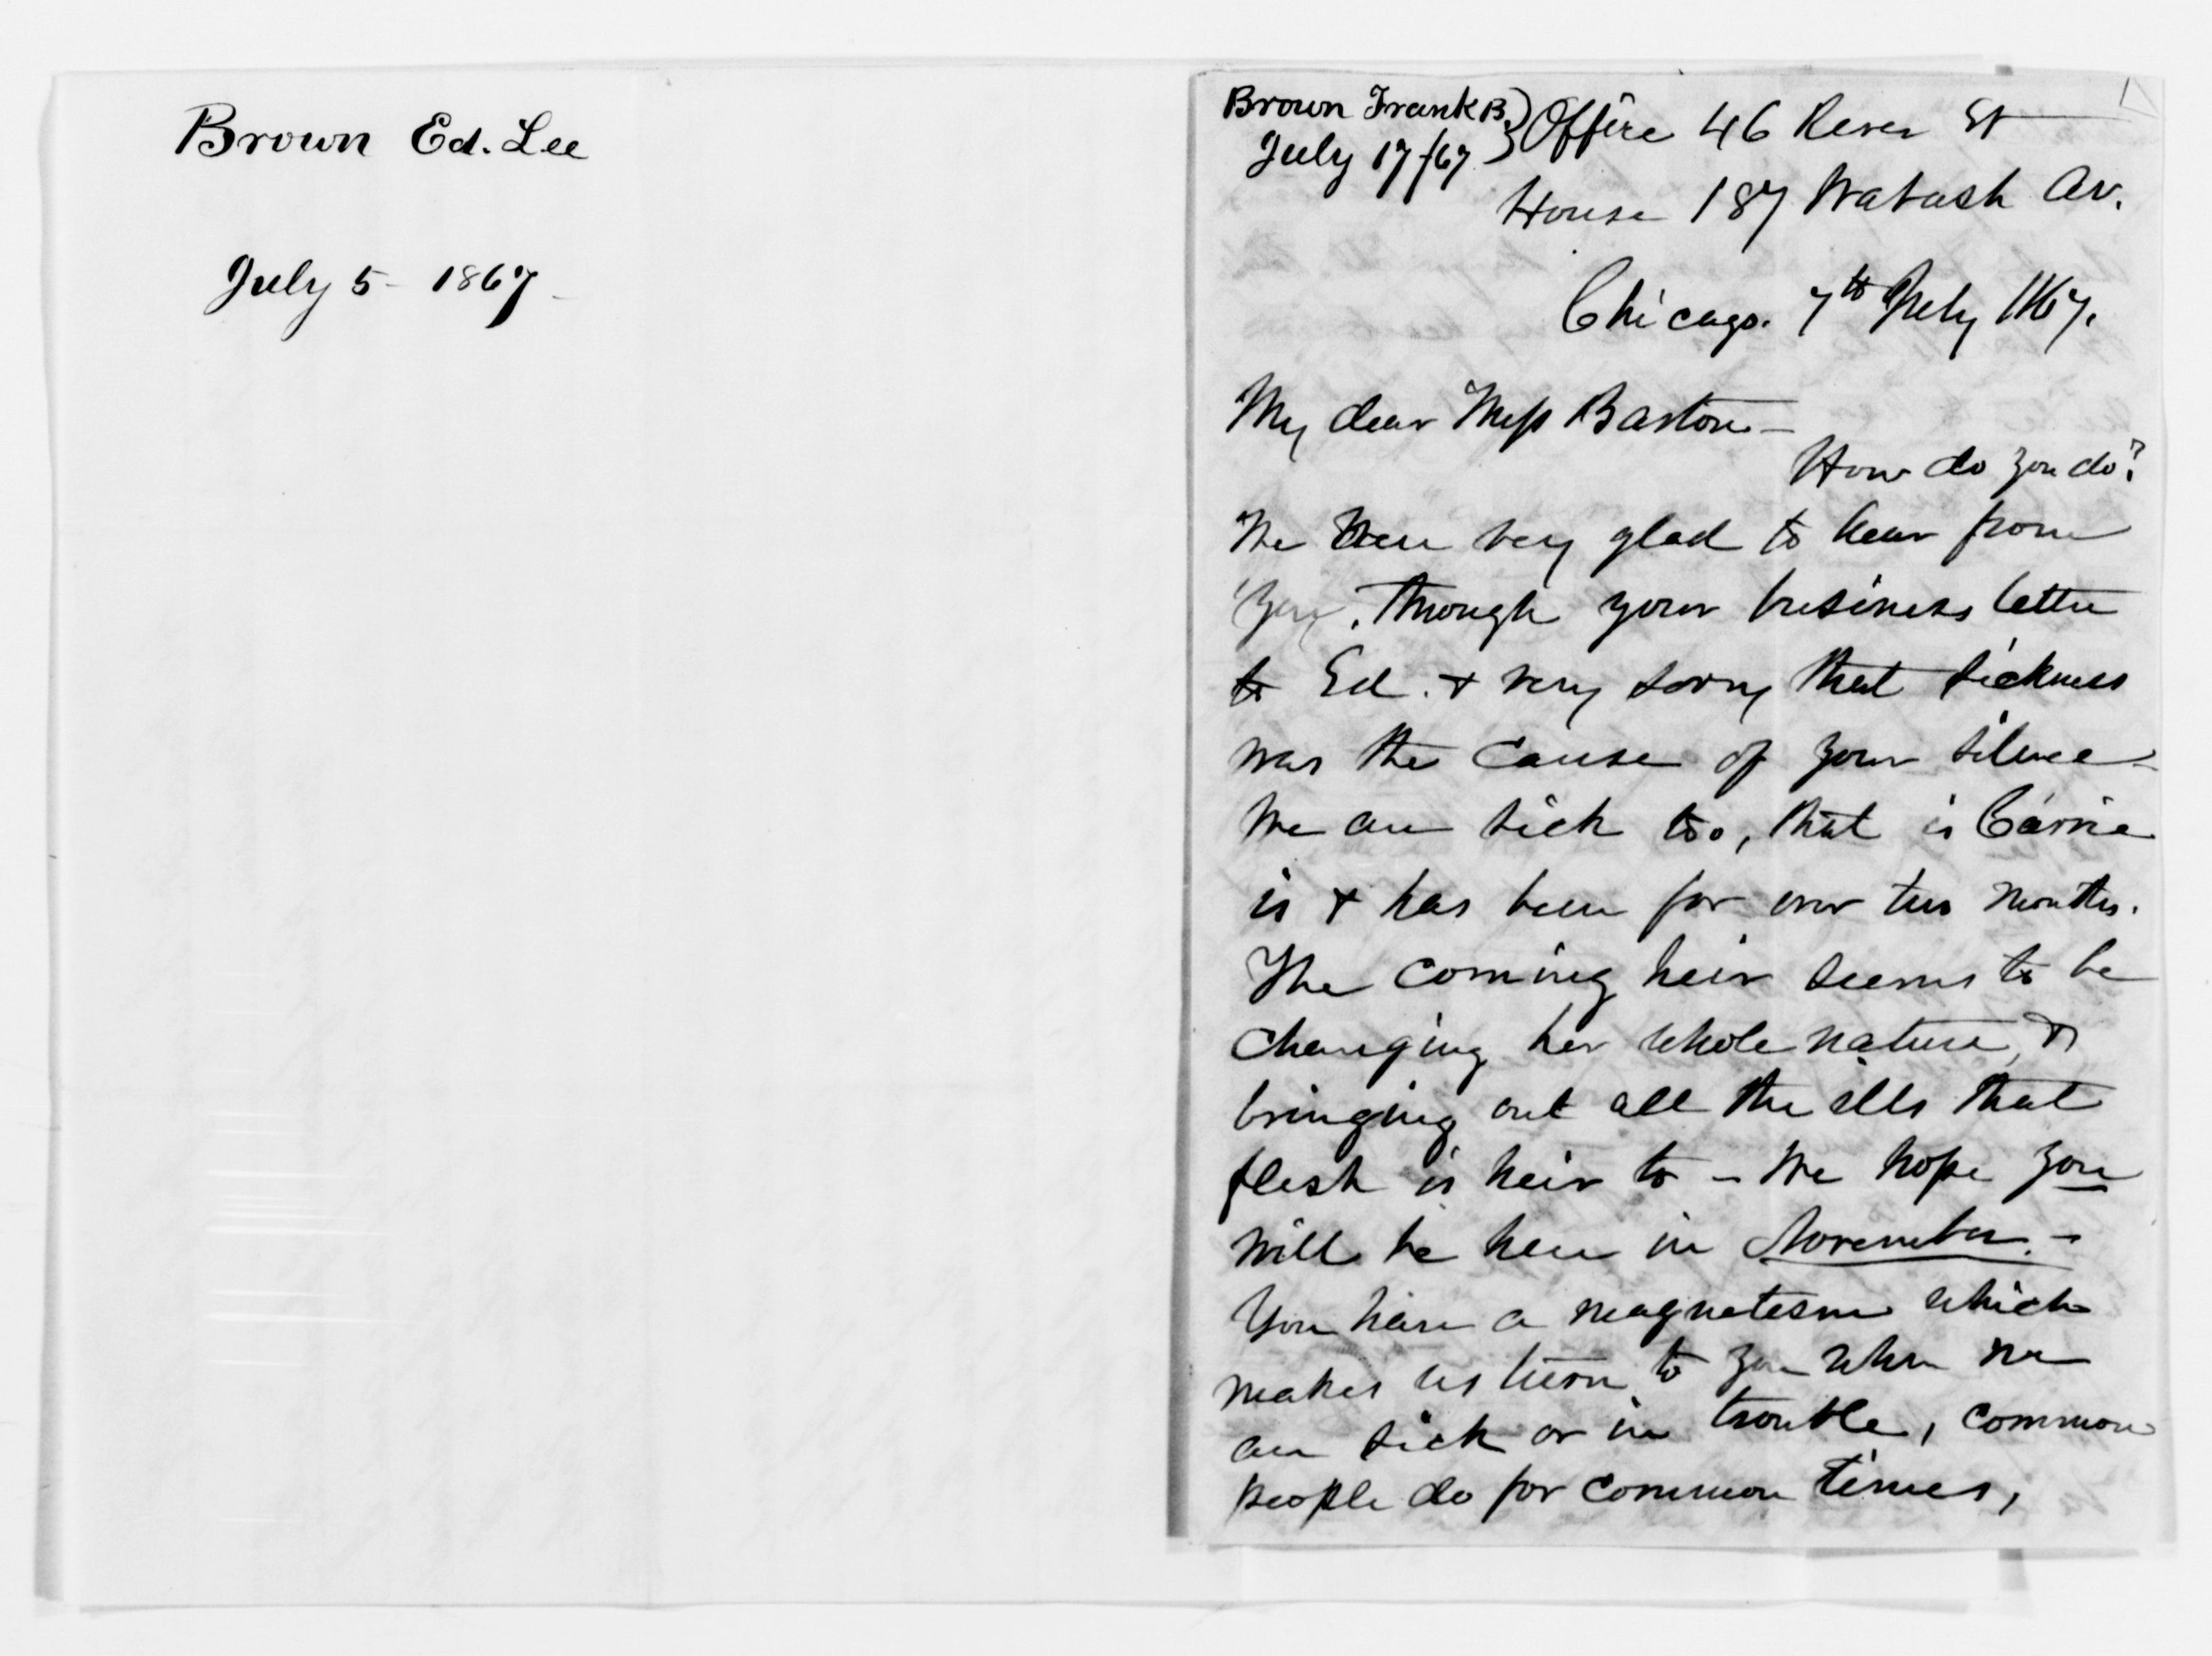 Brown Ed. Lee
July 5 - 1867
Brown Frank B.
July 17/67
Office 46 River St
House 187 Wabash Av.
Chicago. 7th July 1867.
My dear Miss Barton -
How do you do?
We were very glad to hear from
you, through your business letter
to Ed. & very sorry that sickness
was the cause of your silence -
We are sick too, that is Carrie
is & has been for over two months.
The coming heir seems to be
changing her whole nature, &
bringing out all the ills that
flesh is heir to - We hope you
will be here in November. -
You have a magnetism which
makes us turn to you when we
are sick or in trouble, common
people do for common times,